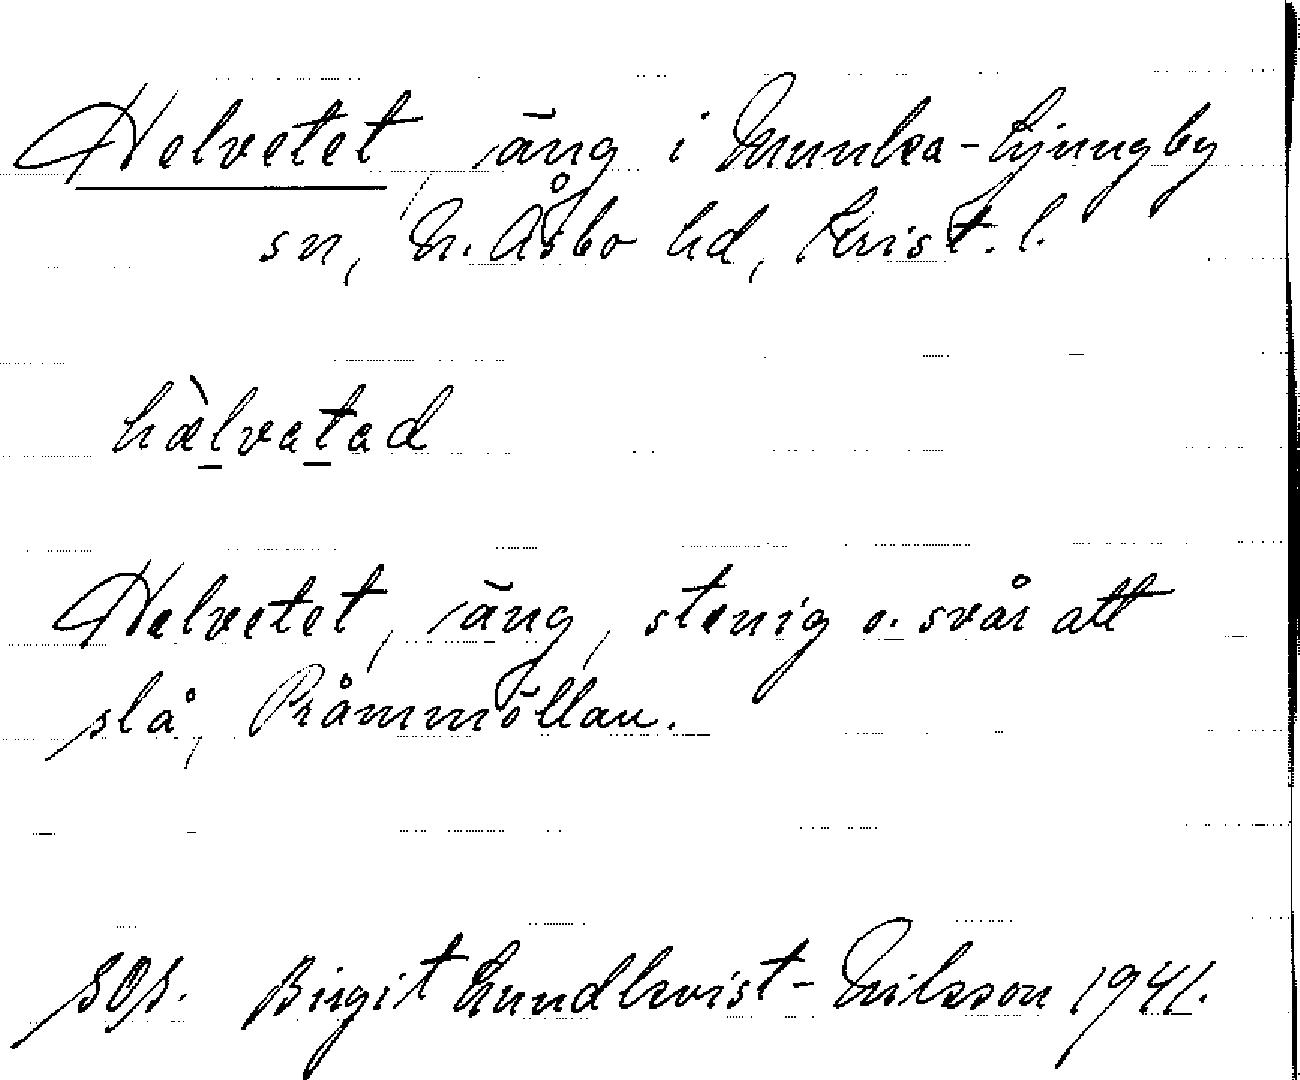 Helvetet, äng i Munka-Ljungby
sn, N. Åsbo hd, Krist. l.
hæ̀l̠vat̠ad
Helvetet, äng, stenig o. svår att
slå, Pråmmöllan.
SOS. Birgit Lundkvist-Nilsson 1941.